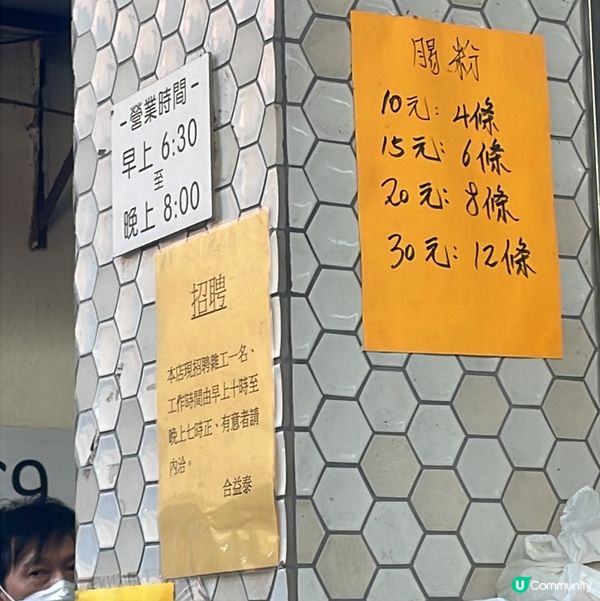 -營業時間-
早上 6:30
至
晚上 8:00
招聘
本店現招聘雜工一名、
工作時間由早上十時至
晚上七時正、有意者請
內洽。
合益泰
腸粉
10元: 4條
15元: 6條
20元: 8條
30元: 12條
59
U Community